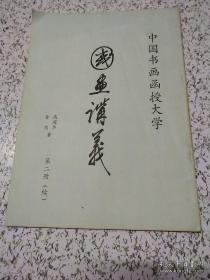 中国书画函授大学
国画讲义
第二册(续)